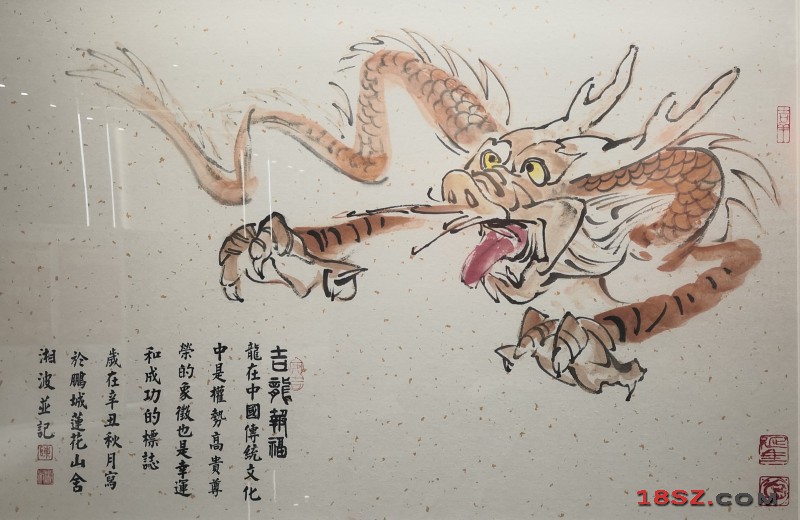 吉龍報福
龍在中國傳統文化
中是權勢高貴尊
榮的象徵也是幸運
和成功的標誌
歲在辛丑秋月寫
於鵬城蓮花山舍
湘波並記
18SZ.COM